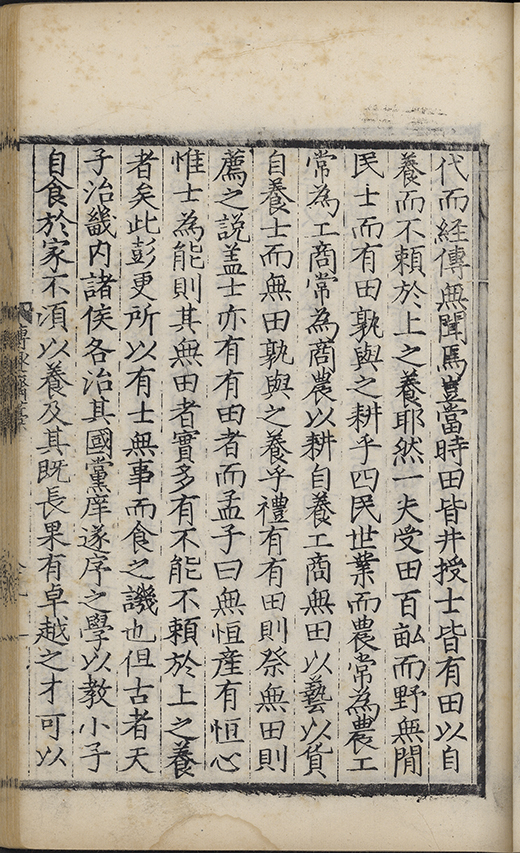 代而經傳無聞焉豈當時田皆井授士皆有田以自
養而不頼於上之養耶然一夫受田百畝而野無閒
民士而有田孰與之耕乎四民世業而農常為農工
常為工商常為商農以耕自養工商無田以藝以貨
自養士而無田孰與之養乎禮有有田則祭無田則
薦之説盖士亦有有田者而孟子曰無恒産有恒心
惟士為能則其無田者實多有不能不頼於上之養
者矣此彭更所以有士無事而食之譏也但古者天
子治畿内諸侯各治其國黨庠遂序之學以教小子
自食於家不湏以養及其既長果有卓越之才可以